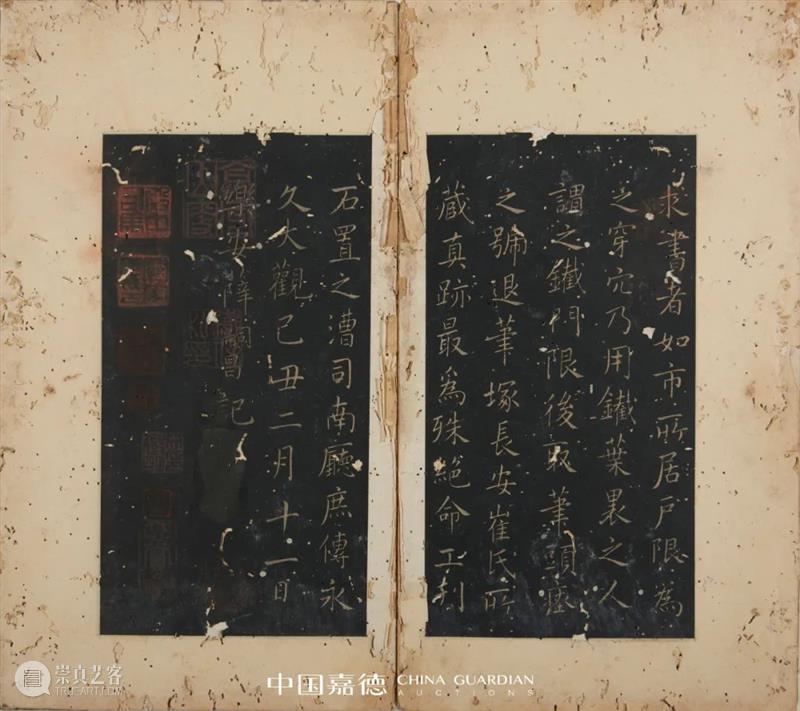 求書者如市所居戶限爲
之穿穴乃用鐵葉裹之人
謂之鐵門限後取筆頭瘞
之號退筆塚長安崔氏所
藏真跡最爲殊絕命工刊
石置之漕司南廳庶傳永
久大觀己丑二月十一日
樂安薛嗣昌記
崇真艺客
TRUEART.COM
中国嘉德 CHINA GUARDIAN
AUCTIONS